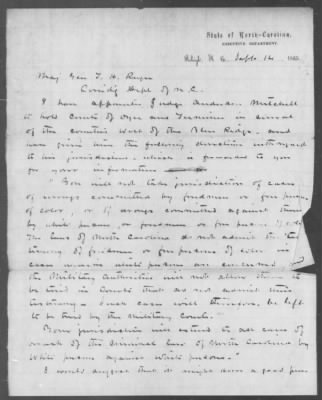 State of North-Carolina,
EXECUTIVE DEPARTMENT,
Raleigh N. C. Sept 14 1865
Maj Gen T. H. Ruger
Comdg Dept of N. C.
I have appointed Judge Anderson Mitchell
to hold Courts of Oyer and Terminer in several
of the counties West of the Blue Ridge, and
have given him the following direction with regard
to his jurisdiction, which is forwarded to you
for your information
"You will not take jurisdiction of cases
of wrongs committed by freedmen or free persons
of color, or of wrongs committed against them
by white persons, or freedmen or free persons of color
The laws of North Carolina do not admit the tes
timony of freedmen or free persons of color in
cases where white persons are concerned and
the Military Authorities will not allow them to
be tried in Courts that do not admit their
testimony. Such cases will therefore be left
to be tried by the Military Courts.
Your jurisdiction will extend to all cases of
breach of the criminal law of North Carolina by
White persons against white persons."
I would suggest that it might have a good